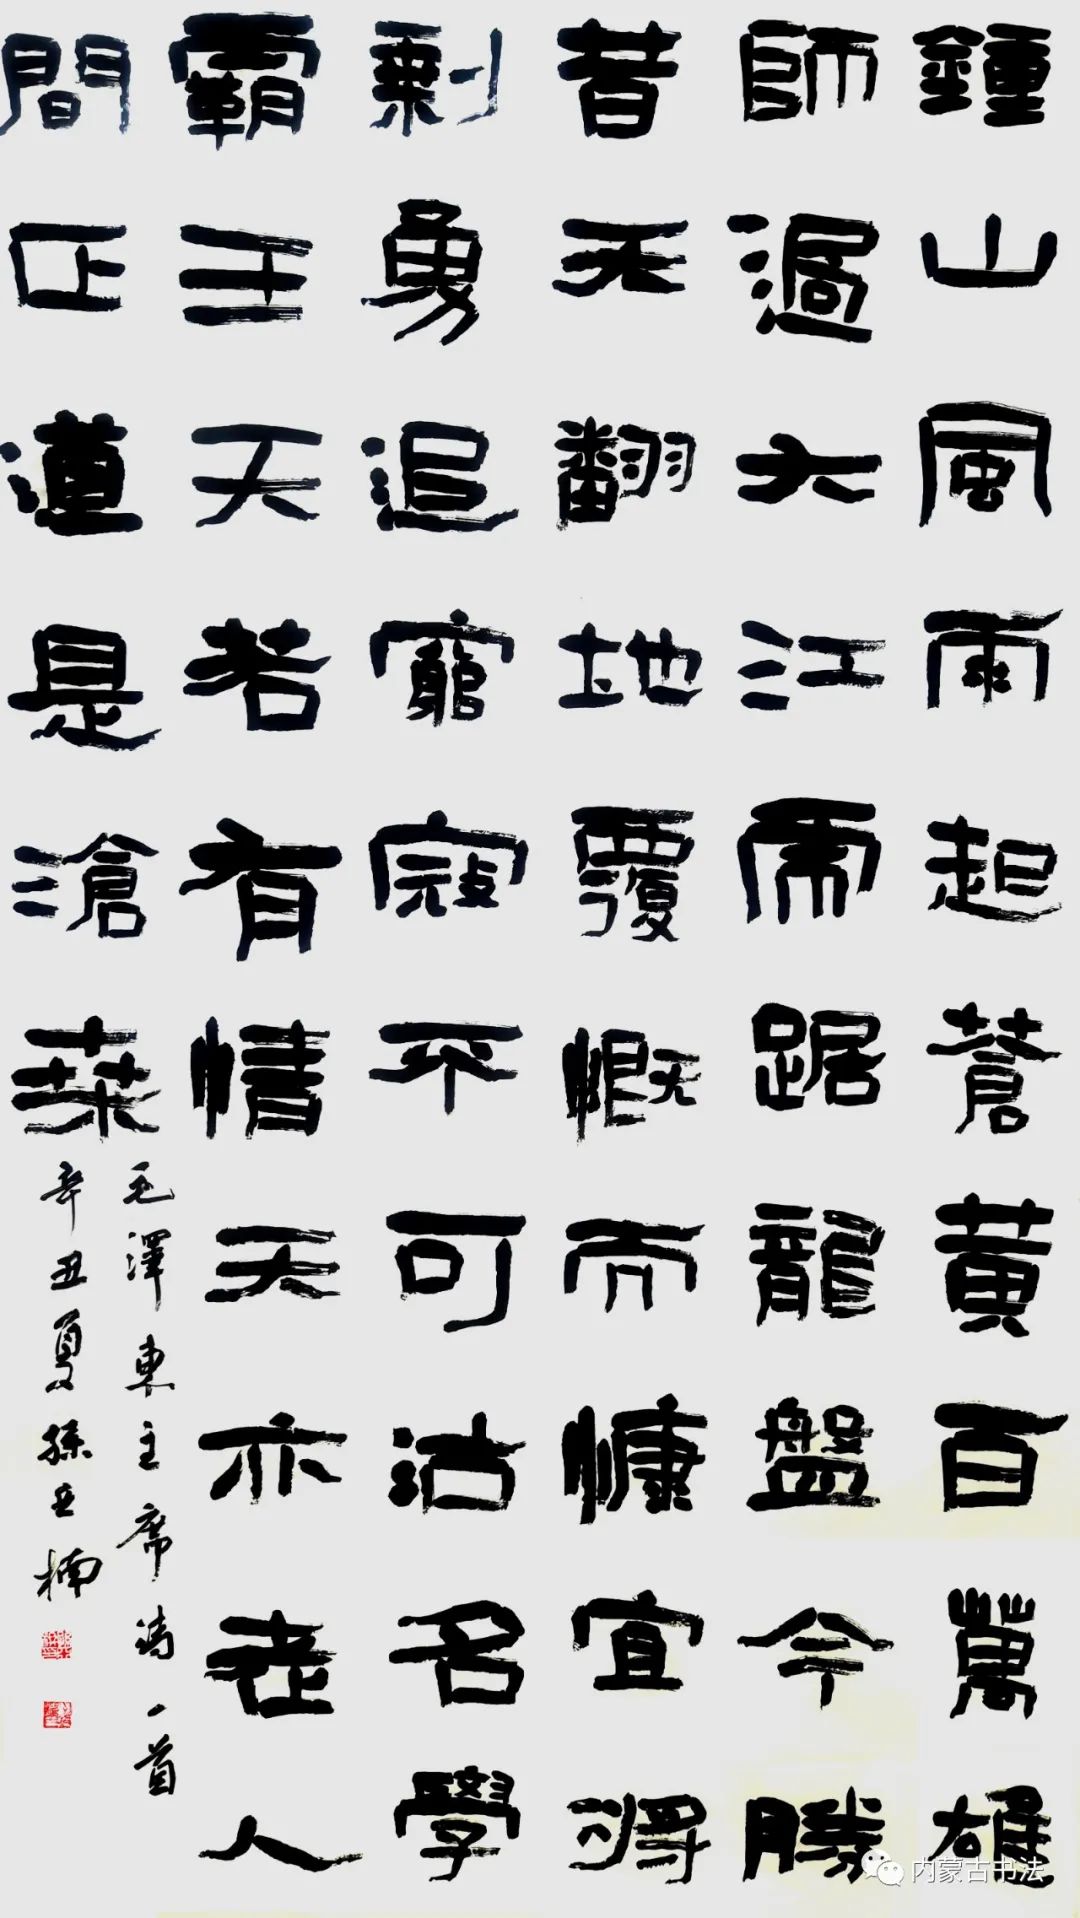 鍾山風雨起蒼黃百萬雄
師過大江虎踞龍盤今勝
昔天翻地覆慨而慷宜將
剩勇追窮寇不可沽名學
霸王天若有情天亦老人
間正道是滄桑
毛澤東主席詩一首
辛丑夏孫亚楠
内蒙古书法